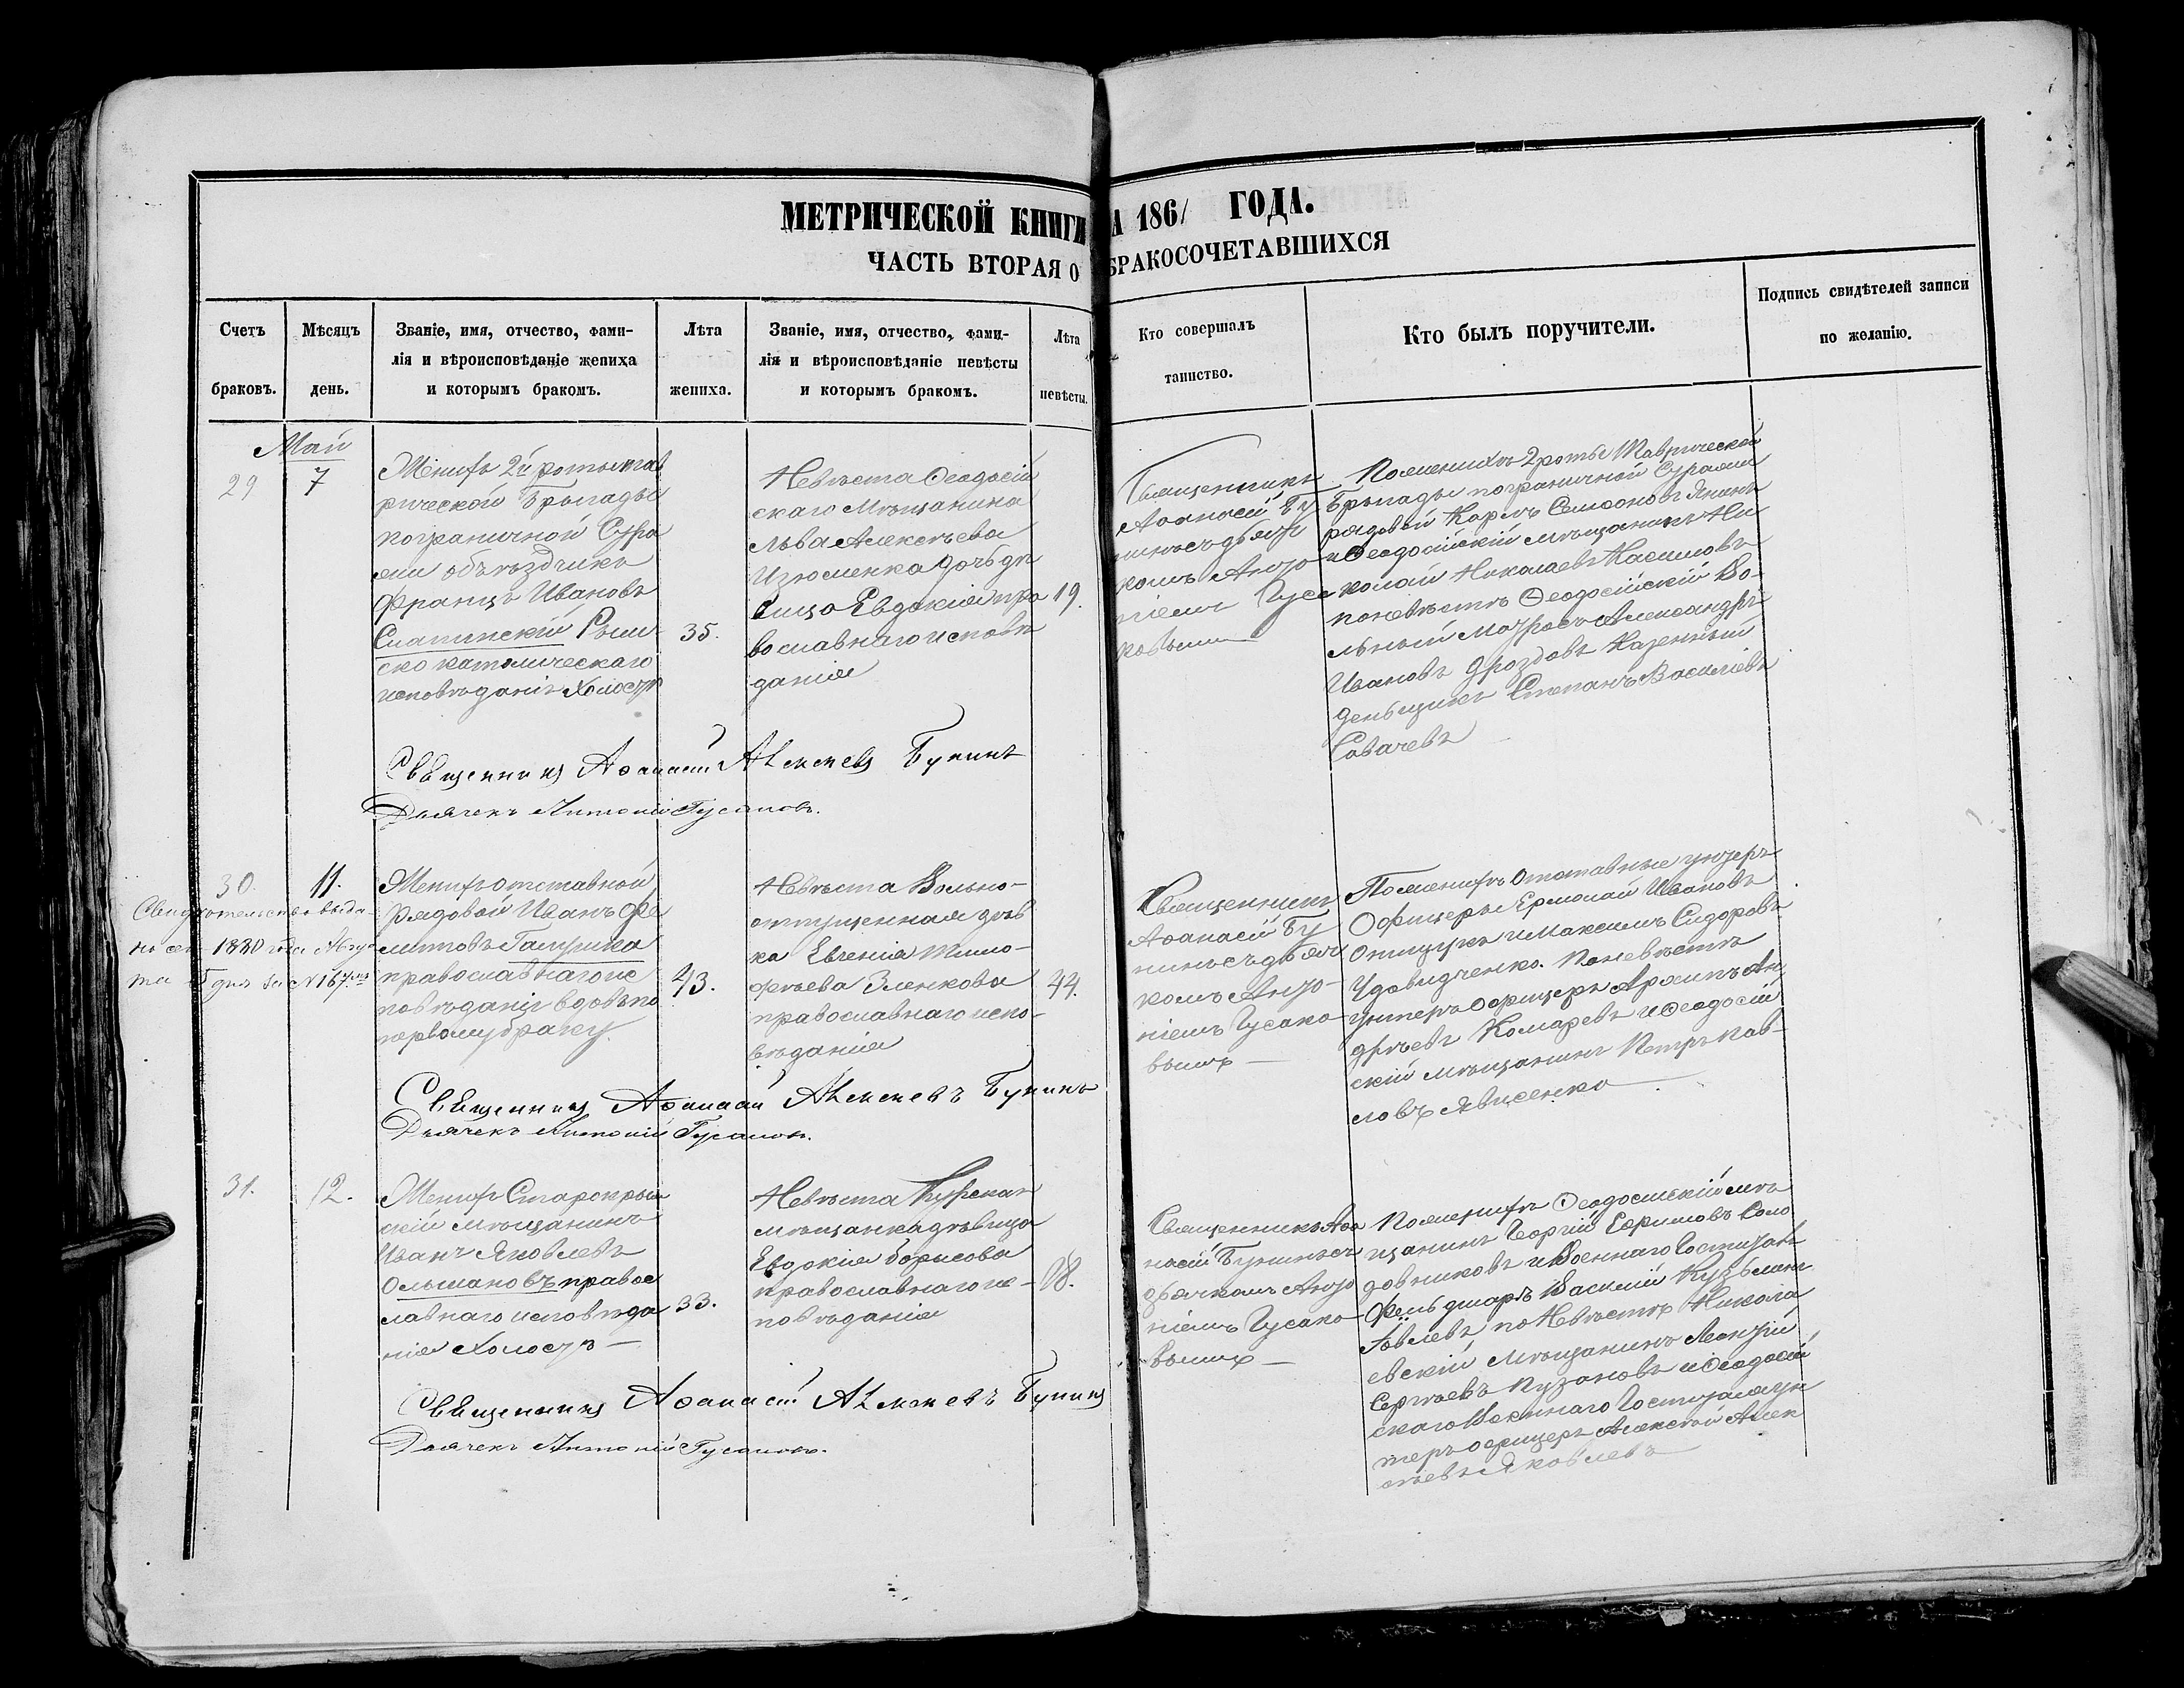 МЕТРИЧЕСКОЙ КНИГИ
А 1861 ГОДА.
ЧАСТЬ ВТОРАЯ О
БРАКОСОЧЕТАВШИХСЯ
Счетъ
браковъ.
Мѣсяцъ
день.
Званіе, имя, отчество, фами-
лія и вѣроисповѣданіе жениха
и которымъ бракомъ.
Лѣта
жениха.
Званіе, имя, отчество, фами-
лія и вѣроисповѣданіе невѣсты
и которымъ бракомъ.
Лѣта
невѣсты.
Кто совершалъ
таинство.
Кто былъ поручители.
Подпись свидѣтелей записи
по желанію.
Май
29
7
Женихъ 2й роты Тав
рической Брыгады
пограничной Стра
жи объѣздчикъ
Францъ Ивановъ
Рим
ско католическаго
исповѣданія Холостъ
35.
Невѣста Ѳеодосій
скаго Мѣщанина
Льва Алексѣева
Изюменка дочь дѣ
вица Евдокія пра
вославнаго исповѣ
данія
19.
Священникъ
Аѳанасій Бу
нинъ съ дьяч
комъ Анто
ніемъ Гуса
ковымъ
По женихѣ 2 роты Таврической
Брыгады пограничной Стражи
рядовой Карлъ
и Ѳеодосійскій мѣщанинъ Ни
колай Николаевъ Касимовъ
по невѣстѣ Ѳеодосійскій Во-
льный Матросъ Александръ
Ивановъ Дроздовъ Казенный
деньщикъ Степанъ Василіевъ
Священникъ Аѳанасій Алексеевъ Бунинъ
Дьячекъ Антоній Гусаковъ.
30.
11.
Свидѣтельство выда-
но сен 1880 года Авгус
та 5 дня за № 167.мъ
Женихъ отставной
рядовой Иванъ Фи
липовъ Галушка
православнаго ис
повѣданія вдовъ по
первому браку.
43.
Невѣста Вольно-
отпущенная дѣв
ка Евгенія Тимо-
фѣева Зленкова
православнаго испо-
вѣданія
44.
Священникъ
Аѳанасій Бу
нинъ съ дьяч
комъ Анто-
ніемъ Гусако-
вымъ
По женихѣ Отставные унтеръ
Офицеры Ермолай Ивановъ
Онищукъ и Максимъ Сидоровъ
Удовидченко. По невѣстѣ
унтеръ офицеръ Архипъ Ан
дрѣевъ Комаревъ и Ѳеодосій
скій мѣщанинъ Петръ Пав-
ловъ Явисенко
Священникъ Аѳанасій Алексеевъ Бунинъ
Дьячекъ Антоній Гусаковъ.
31.
12.
Женихъ Старокрым
скій мѣщанинъ
Иванъ Яковлевъ
Ольшановъ правос
лавнаго исповѣда
нія Холостъ
33.
Невѣста Курская
мѣщанка дѣвица
Евдокія Борисова
православнаго ис-
повѣданія
18.
Священникъ Аѳа
насій Бунинъ съ
дьячкомъ Анто
ніемъ Гусако-
вымъ
По женихѣ Ѳеодосійскій мѣ
щанинъ Георгій Ефимовъ Соло
довниковъ и Военнаго Госпиталя
Фельдшаръ Василій Кузьминъ
по Невѣстѣ Никола
евскій Мѣщанинъ Леонтій
Сергѣевъ Пузановъ и Ѳеодосій
скаго Военнаго Госпиталя ун
теръ офицеръ Алексѣй Алек
сѣевъ Яковлевъ
Священникъ Аѳанасій Алексеевъ Бунинъ
Дьячекъ Антоній Гусаковъ.